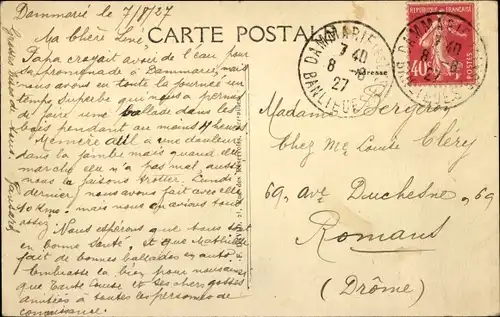 Dammarié le 7/8/27
Ma Chère Léné
CARTE POSTALE
Papa croyait avoir de l'eau pour
sa promenade à Dammarie, mais
nous avons eu toute la journée un
temps superbe qui nous a permis
de faire une ballade dans les
bois pendant au moins 4 heures
Mémère a une douleur
dans la jambe mais quand elle
marche elle n'a pas mal, aussi
nous la faisons trotter. Lundi
dernier nous avons fait avec elle
10 kms. mais nous en avions tous
assez. Nous espérons que tous sont
en bonne santé, et que Mathilde
fait de bonnes ballades en auto.
Embrasse la bien pour nous ainsi
que Tante Louise et les chers gosses
amitiés à toutes les personnes de
connaissance.
Grosses bises de tous
DAMMARIE
7 40
8 -8
27
BANLIEUE
RÉPUBLIQUE FRANÇAISE
40
POSTES
Adresse
Madame Bergeron
Chez Me Louise Cléry
69, Ave Duchesne, 69
Romans
(Drôme)